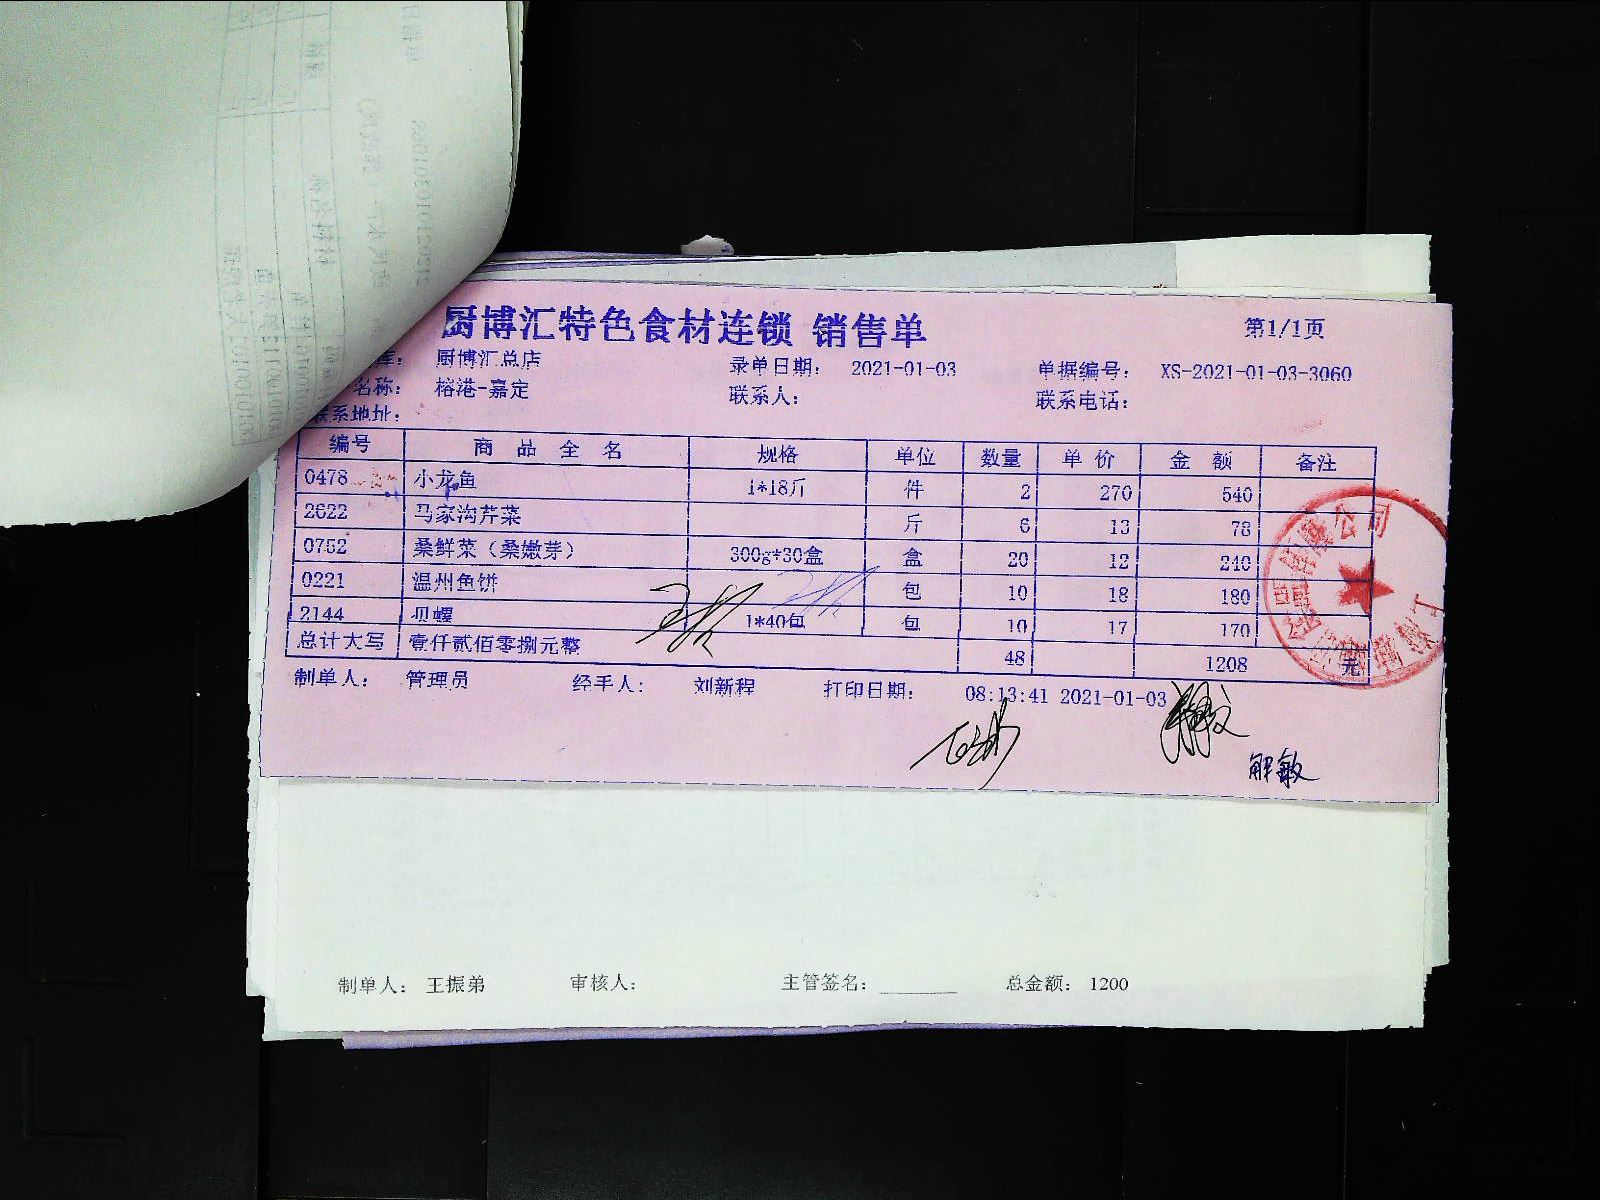 厨博汇特色食材连锁 销售单 第1/1页
库： 厨博汇总店 录单日期： 2021-01-03 单据编号： XS-2021-01-03-3060
名称： 榕港-嘉定 联系人： 联系电话：
联系地址：
编号 商品全名 规格 单位 数量 单价 金额 备注
0478 小龙鱼 1*18斤 件 2 270 540
2622 马家沟芹菜 斤 6 13 78
0752 桑鲜菜（桑嫩芽） 300g*30盒 盒 20 12 240
0221 温州鱼饼 包 10 18 180
2144 贝螺 1*40包 包 10 17 170
总计大写 壹仟贰佰零捌元整 48 1208 元
制单人： 管理员 经手人： 刘新程 打印日期： 08:13:41 2021-01-03
解敏
制单人： 王振弟 审核人： 主管签名：________ 总金额： 1200